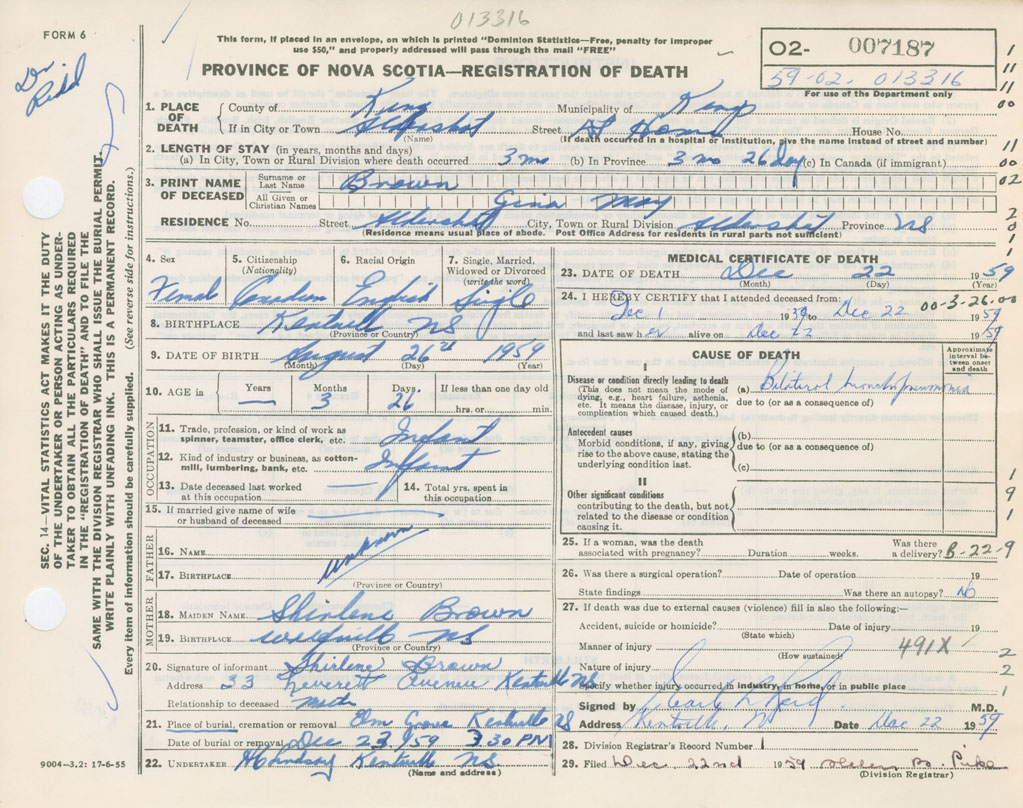 013316
FORM 6
This form, if placed in an envelope, on which is printed "Dominion Statistics—Free, penalty for improper
use $50," and properly addressed will pass through the mail "FREE"
02- 007187
59-02. 013316
For use of the Department only
PROVINCE OF NOVA SCOTIA—REGISTRATION OF DEATH
Dr Reid
1. PLACE OF DEATH
County of Kings Municipality of Kings
If in City or Town Aldershot Street At Home House No.
(Name) (If death occurred in a hospital or institution, give the name instead of street and number)
2. LENGTH OF STAY (in years, months and days)
(a) In City, Town or Rural Division where death occurred 3 mo (b) In Province 3 mo 26 day (c) In Canada (if immigrant)
3. PRINT NAME OF DECEASED
Surname or Last Name Brown
All Given or Christian Names Gina May
RESIDENCE No. Street Aldershot City, Town or Rural Division Aldershot Province NS
(Residence means usual place of abode. Post Office Address for residents in rural parts not sufficient)
4. Sex 5. Citizenship (Nationality) 6. Racial Origin 7. Single, Married, Widowed or Divorced (write the word)
Femal Canadian English Single
8. BIRTHPLACE Kentville NS
(Province or Country)
9. DATE OF BIRTH August 26th 1959
(Month) (Day) (Year)
10. AGE in Years Months Days. If less than one day old
— 3 26 hrs. or min.
OCCUPATION
11. Trade, profession, or kind of work as spinner, teamster, office clerk, etc. Infant
12. Kind of industry or business, as cotton-mill, lumbering, bank, etc. Infant
13. Date deceased last worked at this occupation —
14. Total yrs. spent in this occupation
15. If married give name of wife or husband of deceased —
FATHER
16. NAME
unknown
17. BIRTHPLACE
(Province or Country)
MOTHER
18. MAIDEN NAME Shirlene Brown
19. BIRTHPLACE NS
(Province or Country)
20. Signature of informant Shirlene Brown
Address 33 Leverett Avenue Kentville NS
Relationship to deceased
21. Place of burial, cremation or removal Elm Grove Kentville NS
Date of burial or removal Dec 23/59 3 30 PM
22. UNDERTAKER Kentville NS
(Name and address)
9004—3.2: 17-6-55
MEDICAL CERTIFICATE OF DEATH
23. DATE OF DEATH Dec 22 1959
(Month) (Day) (Year)
24. I HEREBY CERTIFY that I attended deceased from:
Dec 1 1959 to Dec 22 1959
00-3-26.00
and last saw her alive on Dec 22 1959
CAUSE OF DEATH
Approximate interval between onset and death
I
Disease or condition directly leading to death
(This does not mean the mode of dying, e.g., heart failure, asthenia, etc. It means the disease, injury, or complication which caused death.)
(a) Bilateral bronchopneumonia
due to (or as a consequence of)
Antecedent causes
Morbid conditions, if any, giving rise to the above cause, stating the underlying condition last.
(b)
due to (or as a consequence of)
(c)
II
Other significant conditions
contributing to the death, but not related to the disease or condition causing it.
25. If a woman, was the death associated with pregnancy? Duration weeks. Was there a delivery?
B-22-9
26. Was there a surgical operation? Date of operation 19
State findings Was there an autopsy? No
27. If death was due to external causes (violence) fill in also the following:—
Accident, suicide or homicide? Date of injury 19
(State which)
Manner of injury 491X
(How sustained)
Nature of injury
Specify whether injury occurred in industry, in home, or in public place
Signed by Earle L Reid M.D.
Address Kentville, N Date Dec 22 1959
28. Division Registrar's Record Number 1
29. Filed Dec 22nd 1959 Helen B. Pike
(Division Registrar)
SEC. 14—VITAL STATISTICS ACT MAKES IT THE DUTY
OF THE UNDERTAKER OR PERSON ACTING AS UNDER-
TAKER TO OBTAIN ALL THE PARTICULARS REQUIRED
IN THE "REGISTRATION OF DEATH" AND TO FILE THE
SAME WITH THE DIVISION REGISTRAR WHO SHALL ISSUE THE BURIAL PERMIT.
WRITE PLAINLY WITH UNFADING INK. THIS IS A PERMANENT RECORD.
Every item of information should be carefully supplied. (See reverse side for instructions.)
1
11
11
00
11
00
02
2
0
1
1
1
9
1
2
2
1